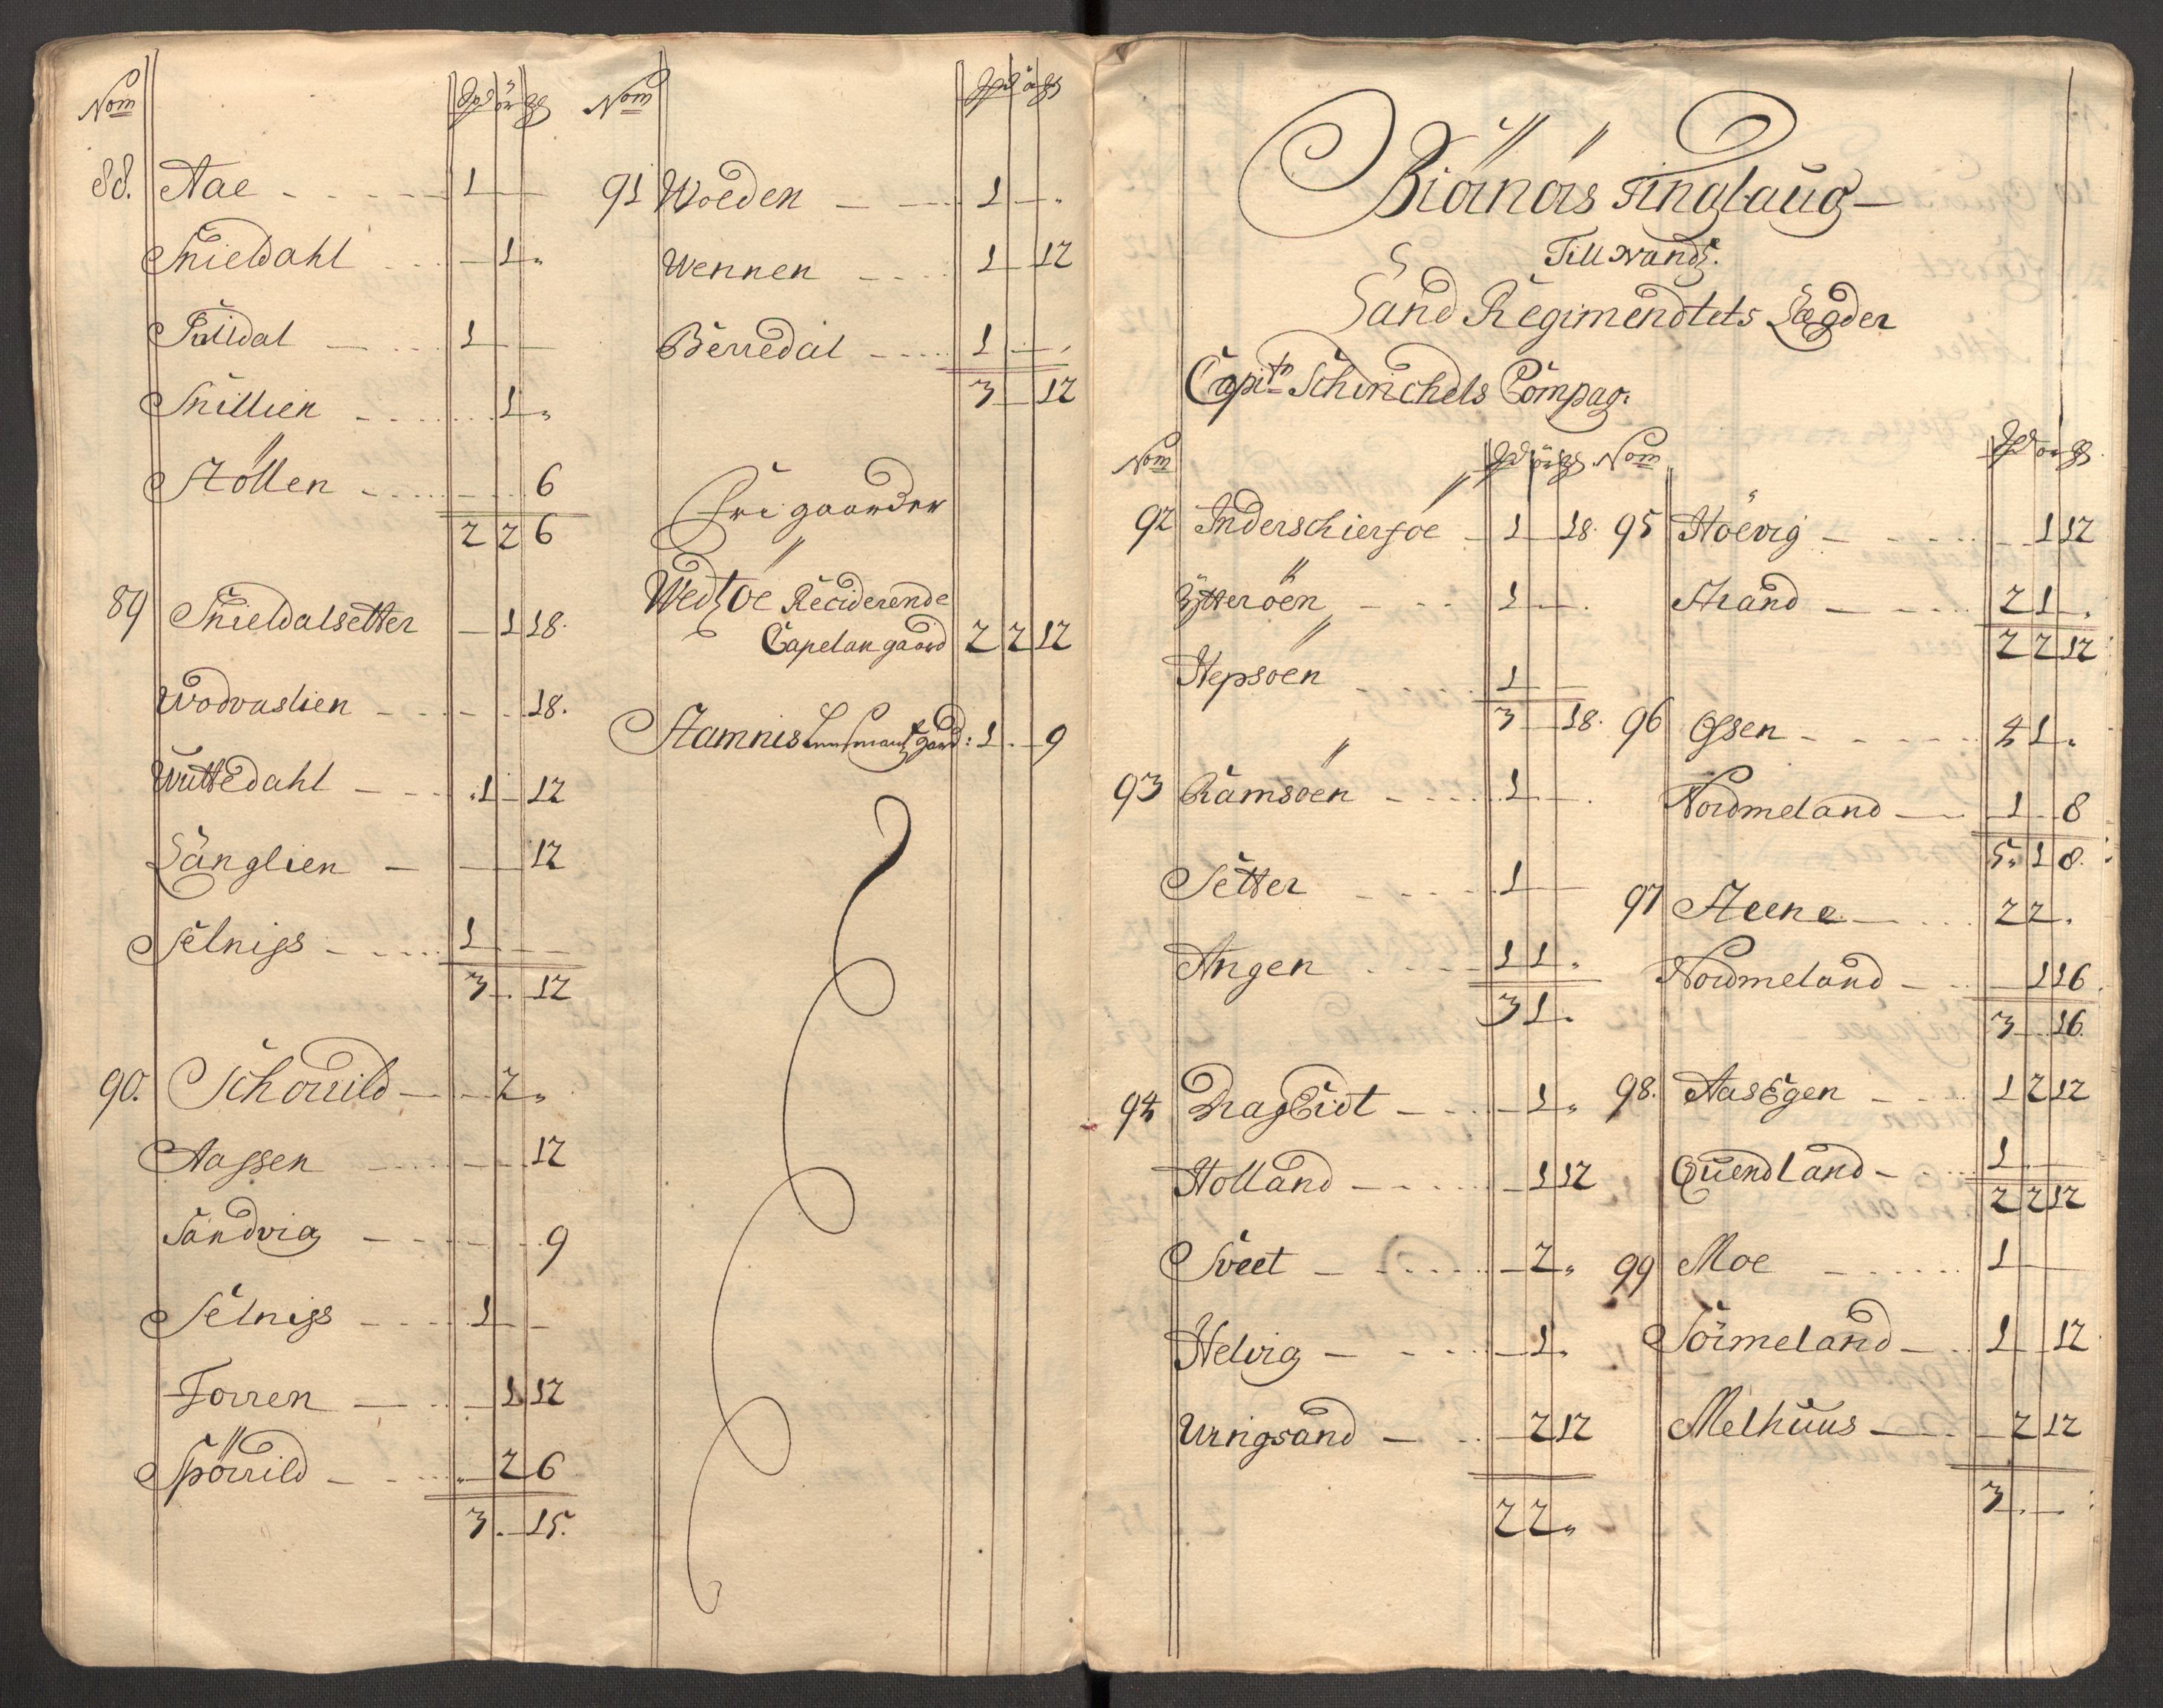 Nom Spd ör gs
88. Aae 1
Snieldahl 1 "
Sulldal 1
Snillien 1 "
Stöllen 6
2 2 6
89 Snieldalsetter 1 18.
Wodvaslien 18.
Wuttedahl 1 12
Länglien 12
Selnigs 1
3 . 12
90. Schorrild 2 "
Aassen 12
Sandvig 9
Selnigs 1
Forren 1 12
Spörrild 2 6
3 . 15.
Nom Spd ör gs
91 Woeden 1 .
Wennen 1 12
Berredal 1
3 12
Fri gaarder
Wedtöe Reciderende
Capelan gaard 2 2 12
Stamnis Lensmans gaard: 1 . 9
Biörnörs Tinglaug
Till Nands.
Land Regimendtets Lægder
Capitn Schinchels Compag:
Nom Spd ör gs
92 Inderschiersöe 1 18.
Ytteröen 1 .
Stepsöen 1
3 18.
93 Ramsöen 1 .
Setter 1
Angen 1 1 "
3 1 "
94 DragEidt 1 "
Holland 1 12
Sveet 2 "
Helvig 1 "
Vringsand 2 12
2 2 "
Nom Spd ör gs
95 Hoevig 1 12
Strand 2 1 "
2 2 12
96 Ossen 4 1 "
Nordmeland 1 8
5 " 1 8.
97 Steene 2 2 "
Nordmeland 1 16
3 16.
98. AasEgen 1 2 12
Quendland 1
2 2 12
99 Moe 1
Sörmeland 1 12
Melhuus 2 12
3 .